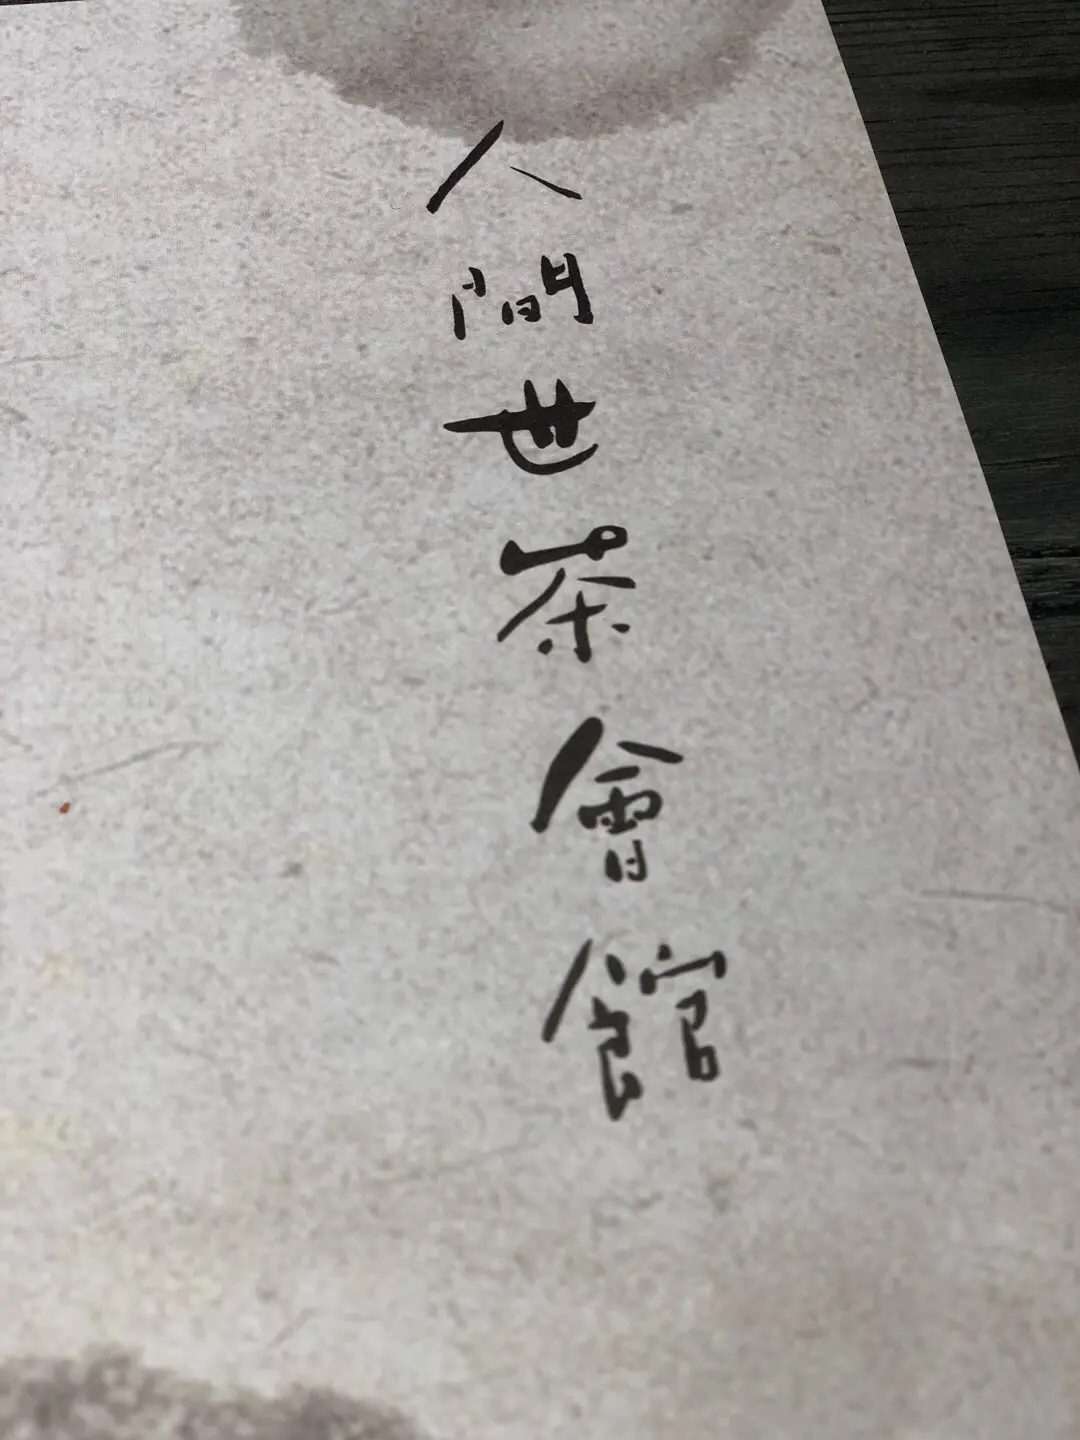 人間世茶會館